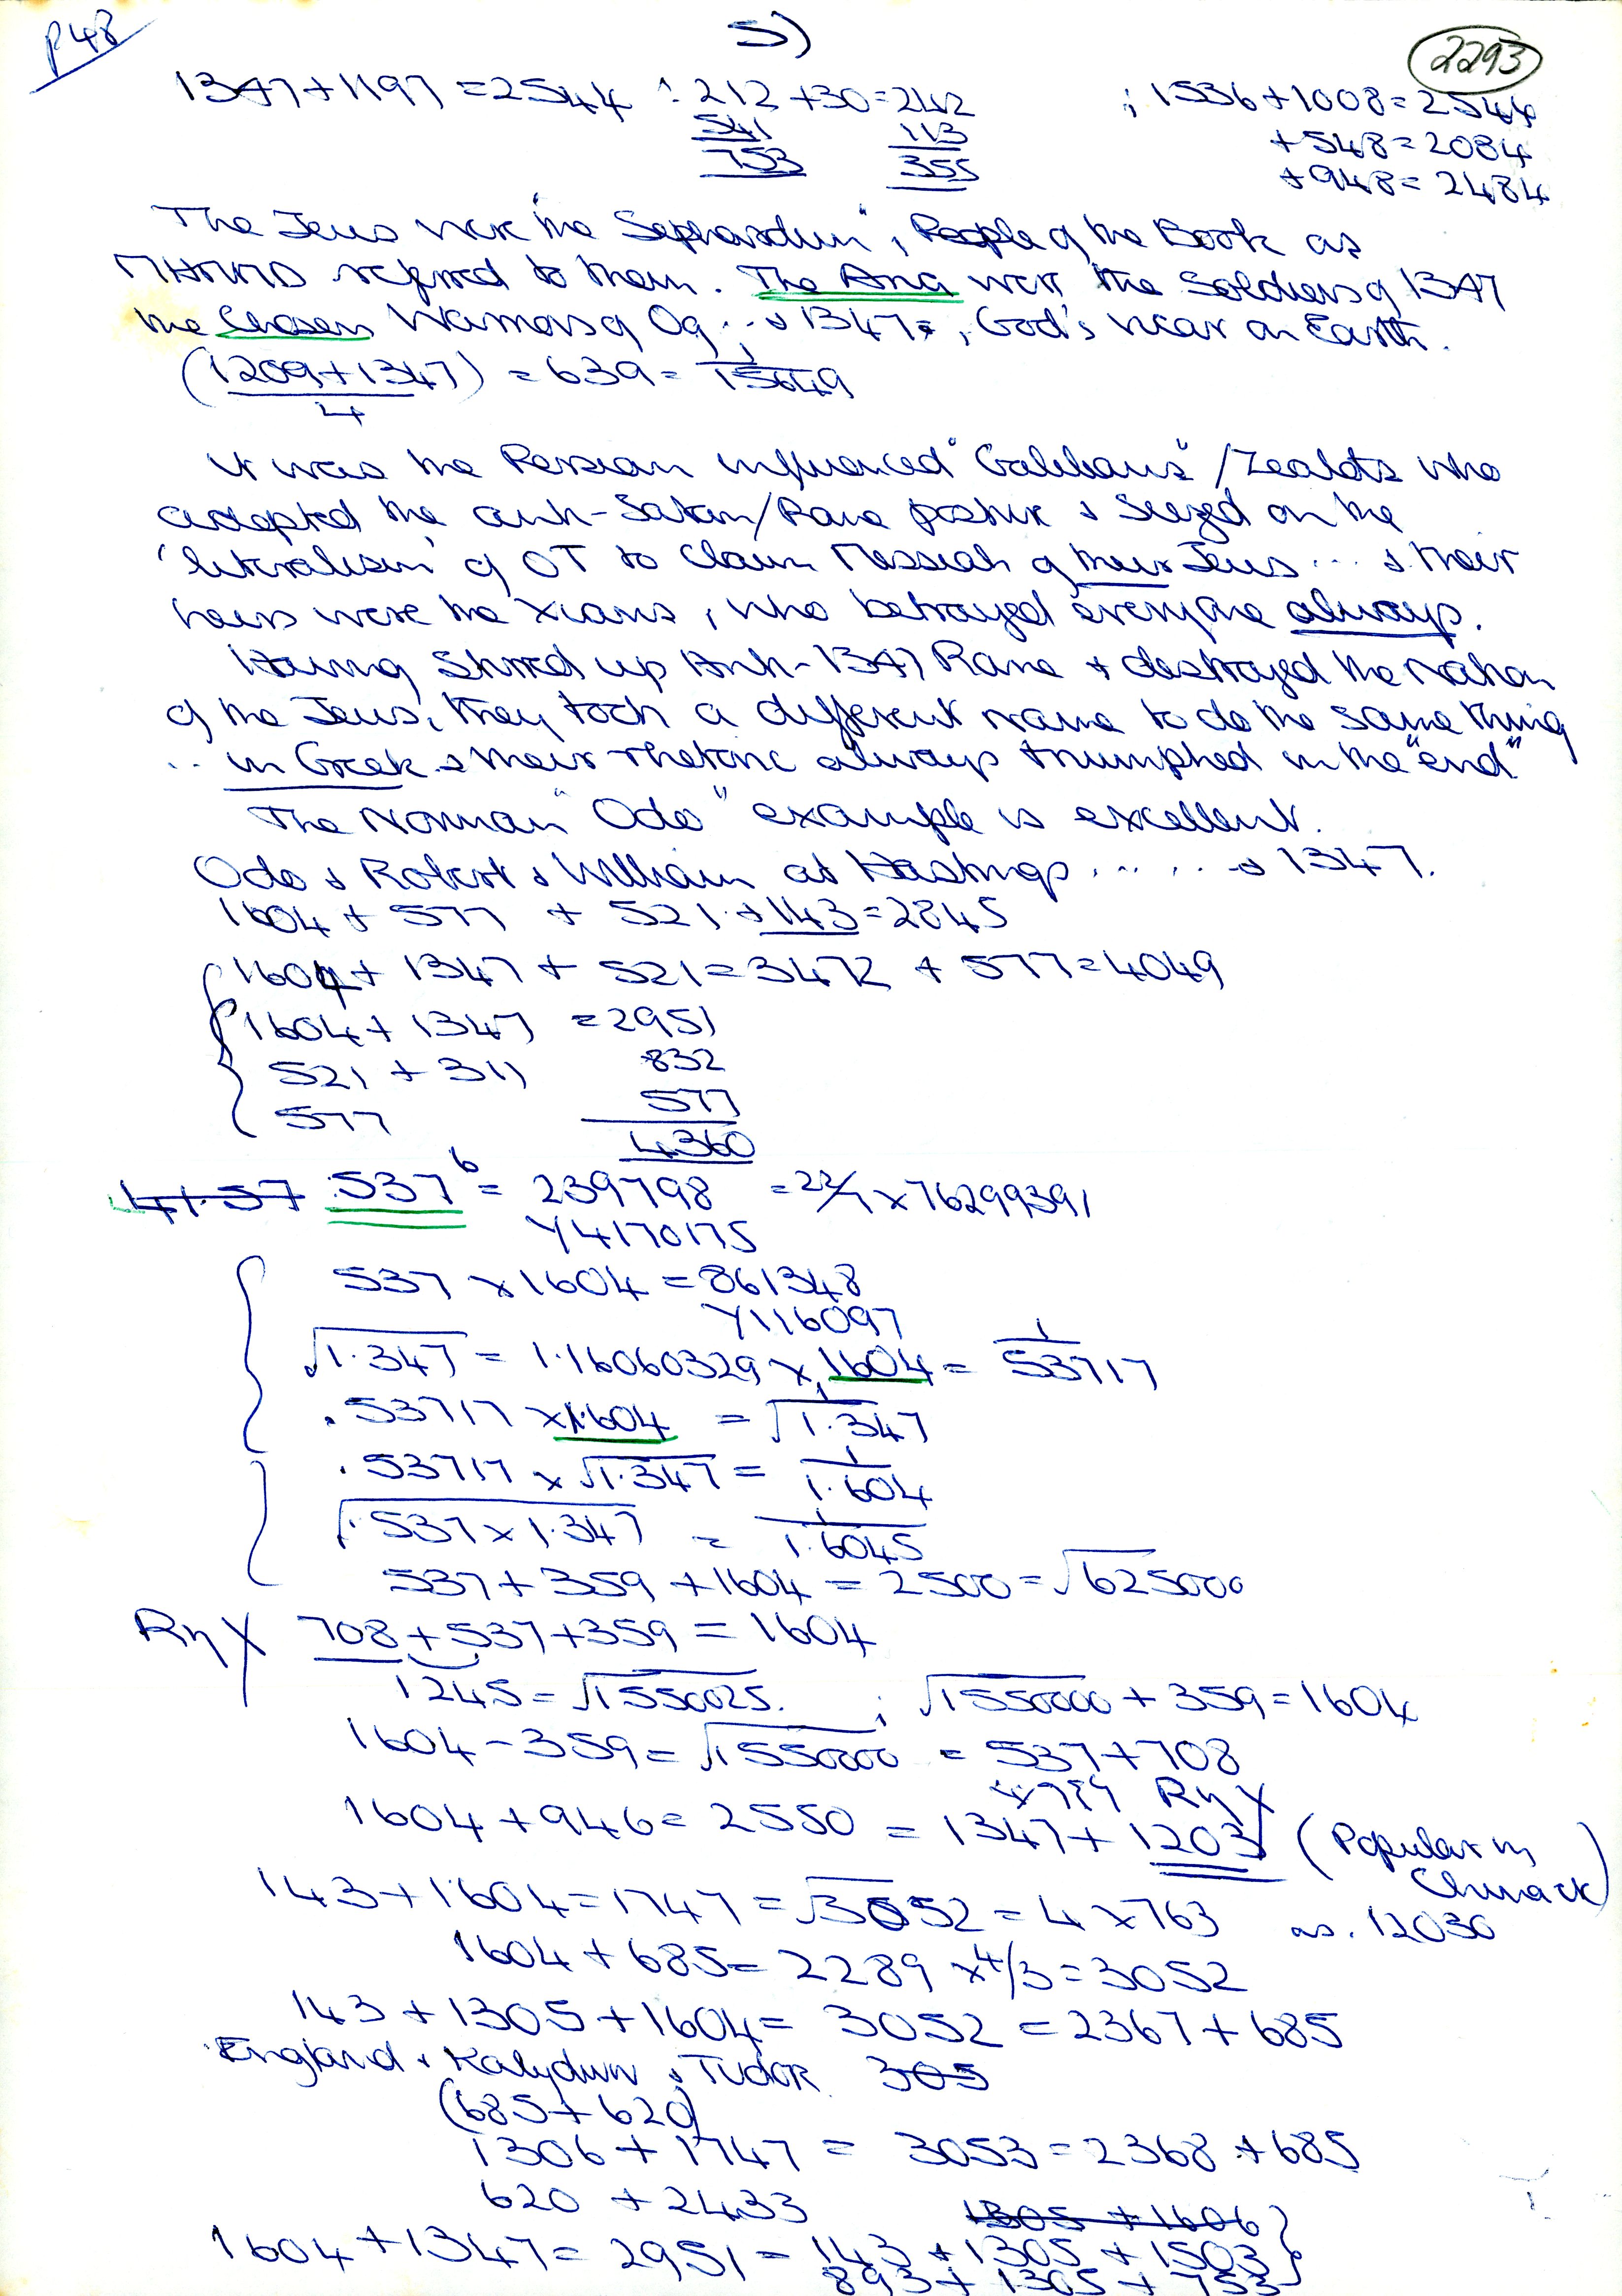 p48
5)
2293
1347+1197 = 2544 : 212 +30=242 ; 1536+1008=2544
541 113 +548=2084
753 355 +948=2484
The Jews were the "Sephardim", People of the Book as
referred to them. The Ana were the Soldiers of 1347
the Chosen Warriors of Og ... & 1347=, God's vicar on Earth.
(1209+1347) = 639 = 1/15649
4
It was the Persian influenced "Galileans"/Zealots who
adopted the anti-Satan/Rome posture & seized on the
'literalism' of OT to claim Messiah of their Jews ... & their
heirs were the Xians, who betrayed everyone always.
Having stirred up Anti-1347 Rome & destroyed the nation
of the Jews, they took a different name to do the same thing
.. in Greek & their rhetoric always triumphed in the "end"
The Norman "Odo" example is excellent.
Odo & Robert & William at Hastings ..... & 1347.
1604 + 577 + 521 + 143 = 2845
1604 + 1347 + 521 = 3472 + 577 = 4049
1604 + 1347 = 2951
521 + 311 832
577 577
4360
41.57 .537⁶ = 239798 = 22/7 x 76299391
Y4170175
537 x 1604 = 861348
Y116097
√1.347 = 1.16060329 x 1604 = 1/53717
.53717 x 1.604 = 1/√1.347
.53717 x √1.347 = 1/1.604
√.537 x 1.347 = 1/1.6045
537 + 359 + 1604 = 2500 = √625000
RnY 708 + 537 + 359 = 1604
1245 = √1550025. ; √1550000 + 359 = 1604
1604 - 359 = √1550000 = 537 + 708
RnY
1604 + 946 = 2550 = 1347 + 1203 (Popular in
143 + 1604 = 1747 = √3052 = 4 x 763 as .12030
1604 + 685 = 2289 x 4/3 = 3052
143 + 1305 + 1604 = 3052 = 2367 + 685
England & Kalydun & Tudor 305
(685 + 620)
1306 + 1747 = 3053 = 2368 + 685
620 + 2433 1305 + 1606
1604 + 1347 = 2951 = 143 + 1305 + 1503
893 + 1305 + 753